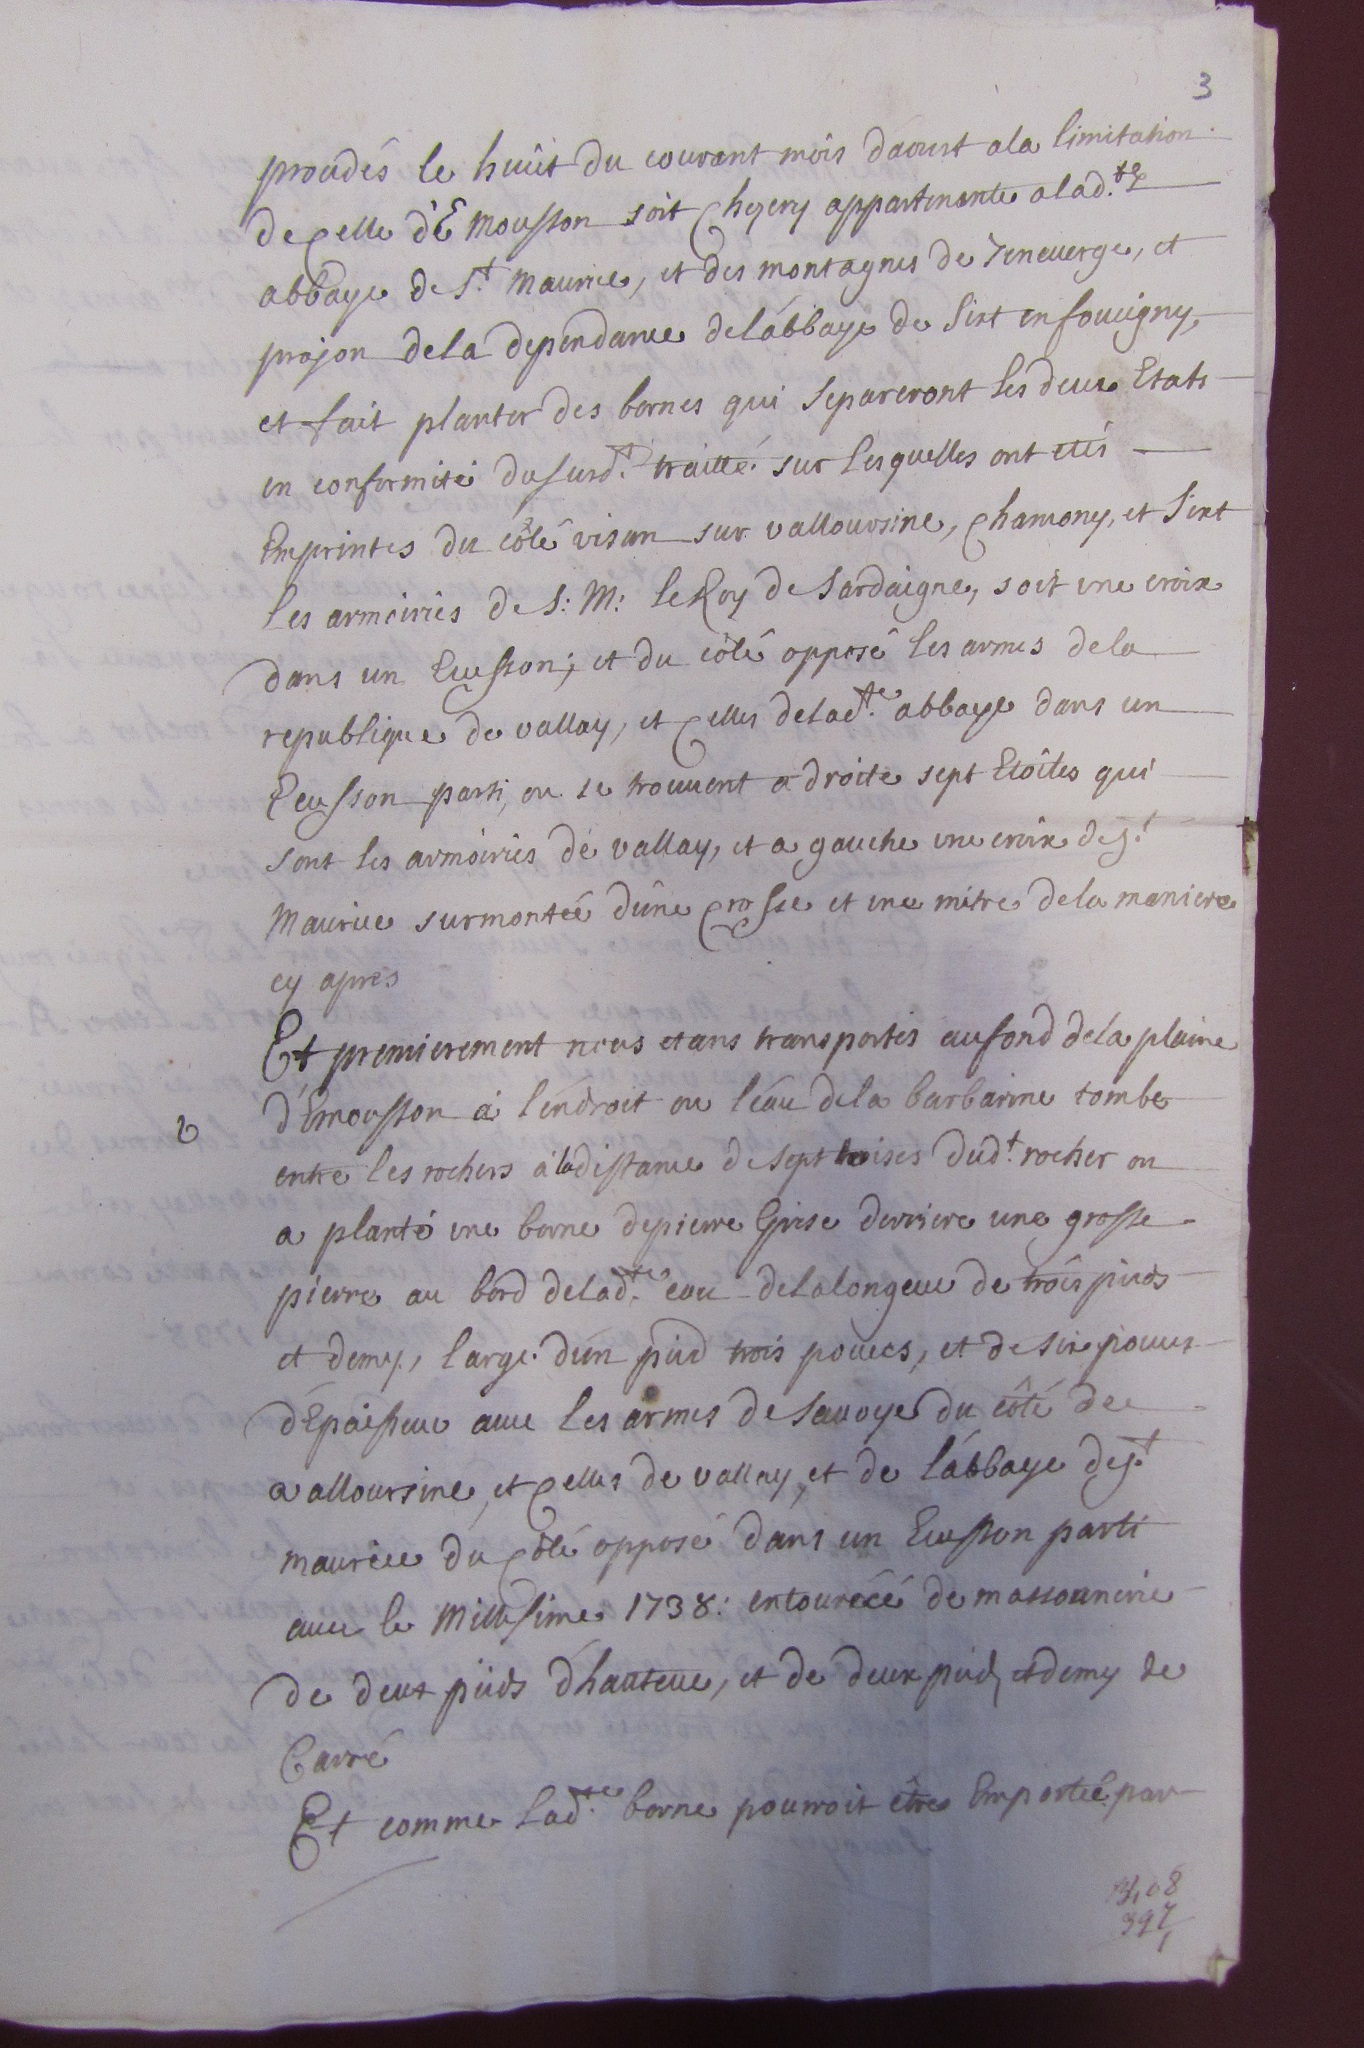 3
proudés le huit du courant mois d'aoust a la limitation
de celle d'Emousson soit Chejery appartenante a lad.te
abbaye de St. Maurice, et des montagnes de Teneuerge, et
projon de la dependance de l'abbaye de Sixt en foucigny,
et fait planter des bornes qui separeront les deux Etats
en conformité du surd.t traitté sur lesquelles ont etés
Emprintes du côté visan sur vallourszine, Chamony, et Sixt
les armoiries de S: M: le Roy de Sardaigne, soit une croix
dans un Ecusson; et du côté opposé les armes de la
republique de vallay, et celles de lad.te abbaye dans un
Ecusson parti, ou se trouvent a droite sept Etoiles qui
sont les armoiries de vallay, et a gauche une croix de S.t
Maurice surmontée d'une Crosse et une mitre de la maniere
cy apres
Et premierement nous etans transportés au fond de la plaine
d'Emousson à l'endroit ou l'eau de la barbarine tombe
2
entre les rochers à la distance de sept toises dud.t rocher on
a planté une borne de pierre Grise derriere une grosse
pierre au bord de lad.te eau de la longeur de trois pieds
et demy, large d'un pied trois pouces, et de six pouces
d'Epaisseur avec les armes de Savoye du côté de
valloursine, et celles de vallay, et de l'abbaye de S.t
maurice du Côté opposé dans un Ecusson parti
avec le Millesime 1738: entourécé de massonnerie
de deux pieds d'hauteur, et de deux pieds et demy de
Carré
Et comme lad.te borne pourroit être Emportée par
397